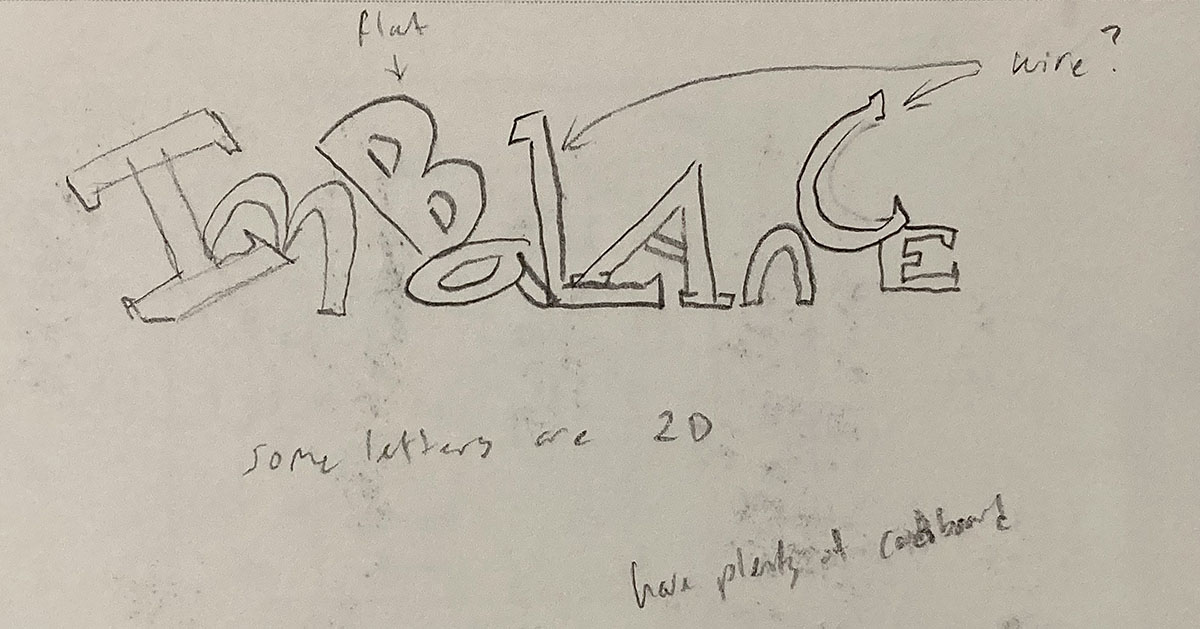 flat
wire?
ImBaLAnCE
some letters are 2D
have plenty of cardboard